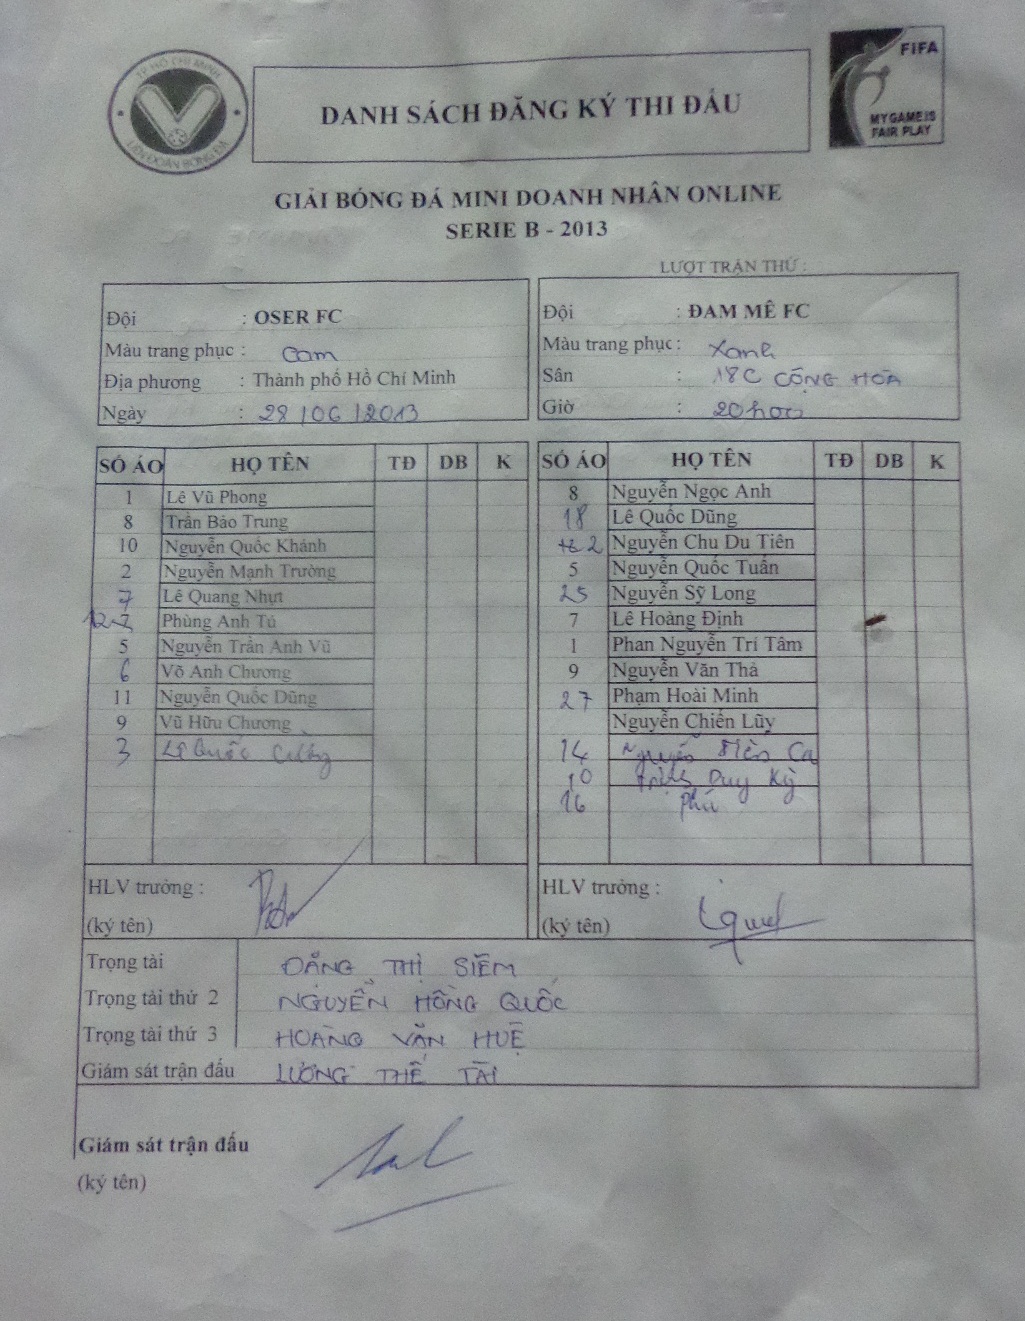 TP HỒ CHÍ MINH
LIÊN ĐOÀN BÓNG ĐÁ
DANH SÁCH ĐĂNG KÝ THI ĐẤU
FIFA
MY GAME IS
FAIR PLAY
GIẢI BÓNG ĐÁ MINI DOANH NHÂN ONLINE
SERIE B - 2013
LƯỢT TRẬN THỨ :
Đội : OSER FC
Màu trang phục : Cam
Địa phương : Thành phố Hồ Chí Minh
Ngày : 28/06/2013
Đội : ĐAM MÊ FC
Màu trang phục : Xanh
Sân : 18C CỘNG HÒA
Giờ : 20
SỐ ÁO HỌ TÊN TĐ DB K
1 Lê Vũ Phong
8 Trần Bảo Trung
10 Nguyễn Quốc Khánh
2 Nguyễn Mạnh Trường
7 Lê Quang Nhựt
12 Phùng Anh Tú
5 Nguyễn Trần Anh Vũ
6 Võ Anh Chương
11 Nguyễn Quốc Dũng
9 Vũ Hữu Chương
3 Lê Quốc
SỐ ÁO HỌ TÊN TĐ DB K
8 Nguyễn Ngọc Anh
18 Lê Quốc Dũng
2 Nguyễn Chu Du Tiên
5 Nguyễn Quốc Tuấn
25 Nguyễn Sỹ Long
7 Lê Hoàng Định
1 Phan Nguyễn Trí Tâm
9 Nguyễn Văn Thả
27 Phạm Hoài Minh
Nguyễn Chiến Lũy
14 Nguyễn Ca
10 Duy Kỳ
16 Phú
HLV trưởng :
(ký tên)
HLV trưởng :
(ký tên)
Trọng tài ĐẶNG THỊ SIÊM
Trọng tài thứ 2 NGUYỄN HỒNG QUỐC
Trọng tài thứ 3 HOÀNG VĂN HUỆ
Giám sát trận đấu LƯƠNG THẾ TÀI
Giám sát trận đấu
(ký tên)